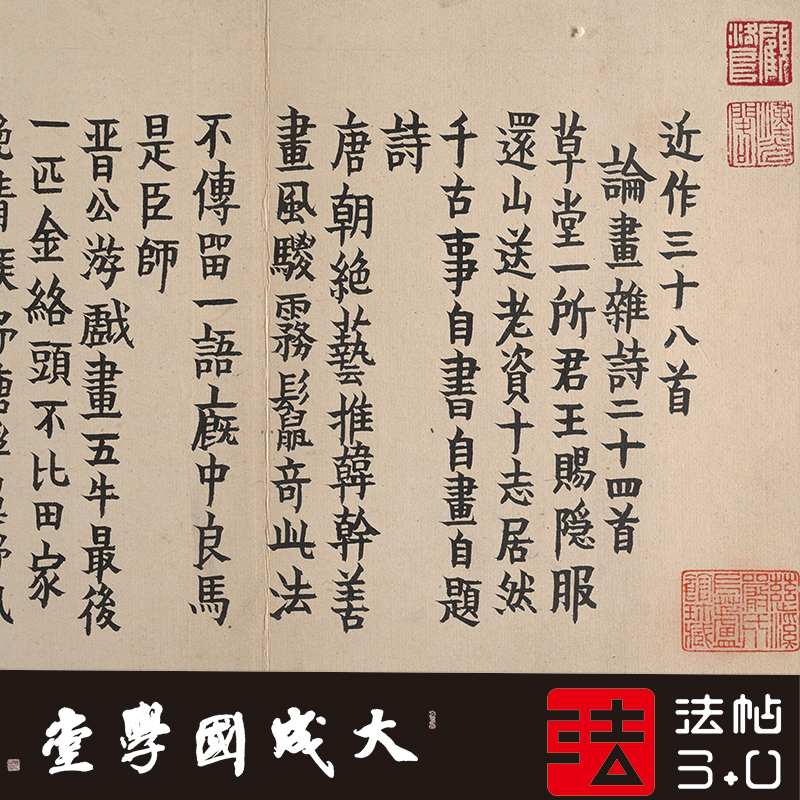 近作三十八首
論畫雜詩二十四首
草堂一所君王賜隐服
還山送老資十志居然
千古事自書自畫自題
詩
唐朝絶藝推韓幹善
畫風騣霧鬛竒此法
不傳留一語厩中良馬
是臣師
晋公游戲畫五牛最後
一匹金絡頭不比田家
大成國學堂
法帖
3.0